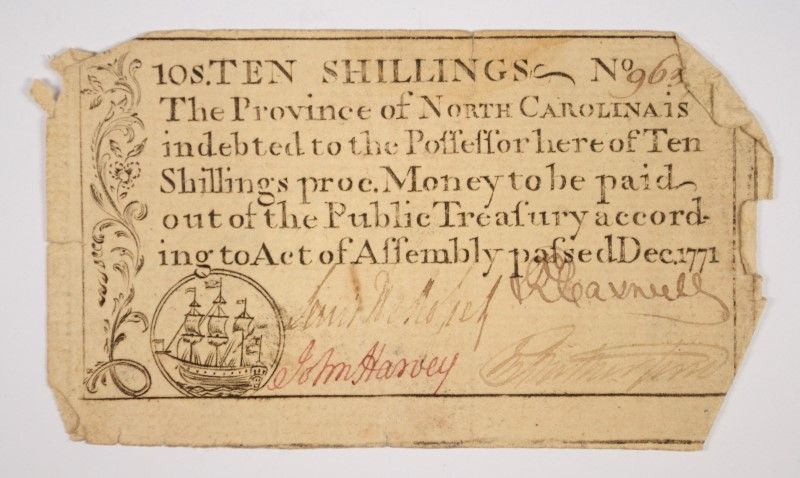 10S. TEN SHILLINGS No 96
The Province of NORTH CAROLINA is
indebted to the Poſſeſſor here of Ten
Shillings proc. Money to be paid
out of the Public Treaſury accord-
ing to Act of Aſſembly paſsed Dec. 1771
R Caswell
John Harvey